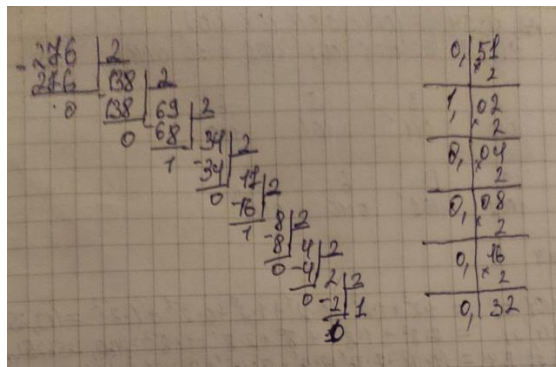 276 | 2
- 276 | 138 | 2
0 - 138 | 69 | 2
0 - 68 | 34 | 2
1 - 34 | 17 | 2
0 - 16 | 8 | 2
1 - 8 | 4 | 2
0 - 4 | 2 | 2
0 - 2 | 1
0
0, | 51
× 2
1, | 02
× 2
0, | 04
× 2
0, | 08
× 2
0, | 16
× 2
0, | 32